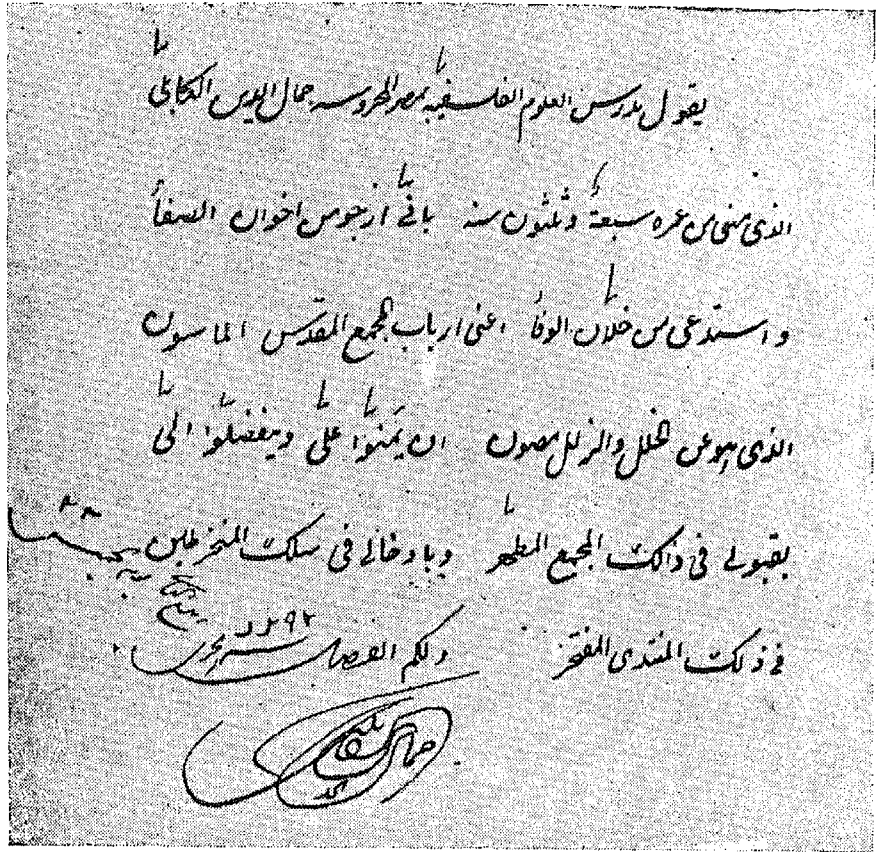 يقول مدرس العلوم الفلسفية بمصر المحروسه جمال الدين الكابلى
الذى مضى من عمره سبعة وثلثون سنه بانى ارجو من اخوان الصفا
واستدعى من خلان الوفا اعنى ارباب المجمع المقدس الماسون
الذى هو عن الخلل والزلل مصون ان يمنوا على ويتفضلوا الى
بقبولى فى ذالك المجمع المطهر وبادخالى فى سلك المنخرطين
فى ذلك المنتدى المفتخر ولكم الفضل
يوم الخميس ٢٢ ربيع
١٢٩٢
جمال الدين